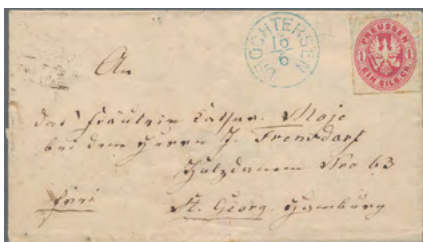 DROCHTERSEN
16
6
PREUSSEN
1 1
EIN SILB.GR.
An
das Fräulein Cathar. Moje
bei dem Herrn J. Frensdorf
Holzdamm Nro 63
frei
St. Georg. Hamburg